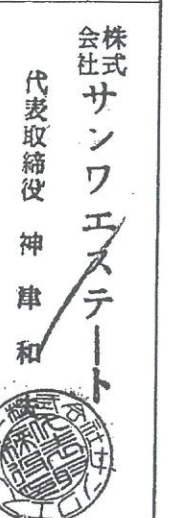 株式会社サンワエステート
代表取締役 神津和